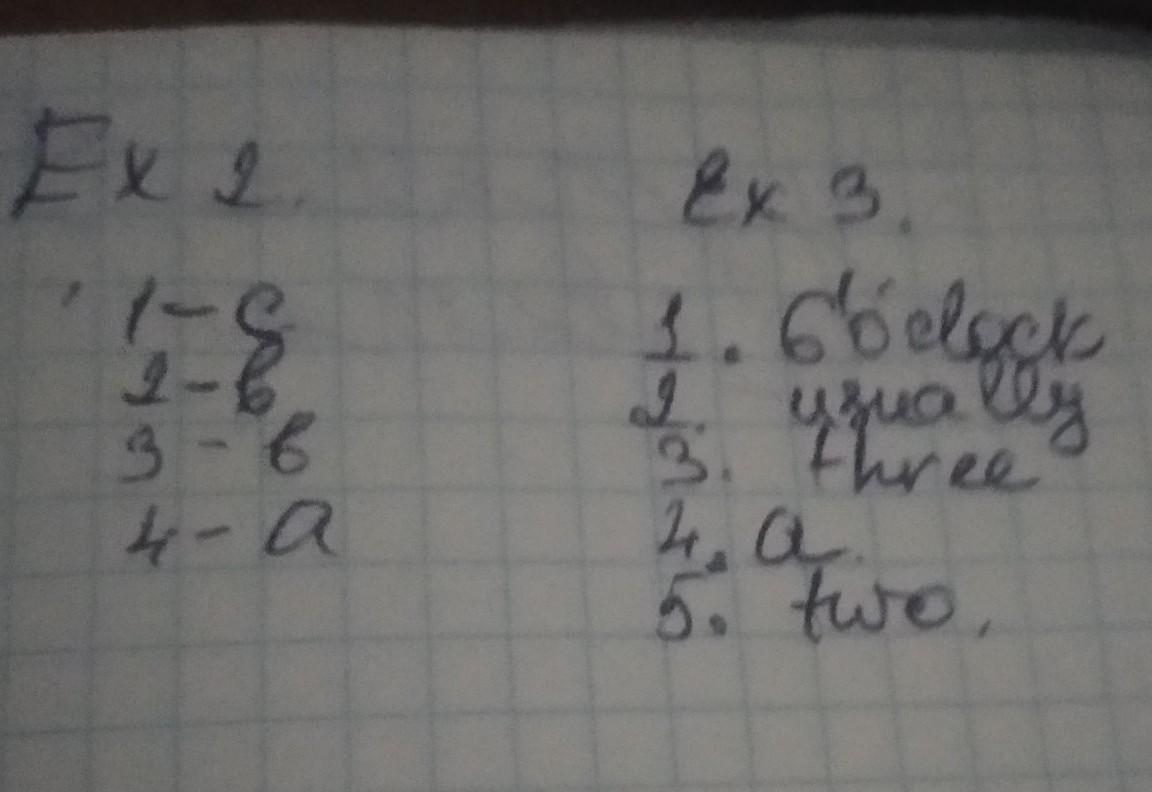 Ex 2.
1 - c
2 - b
3 - b
4 - a
Ex 3.
1. 6 o'clock
2. usually
3. three
4. a.
5. two.